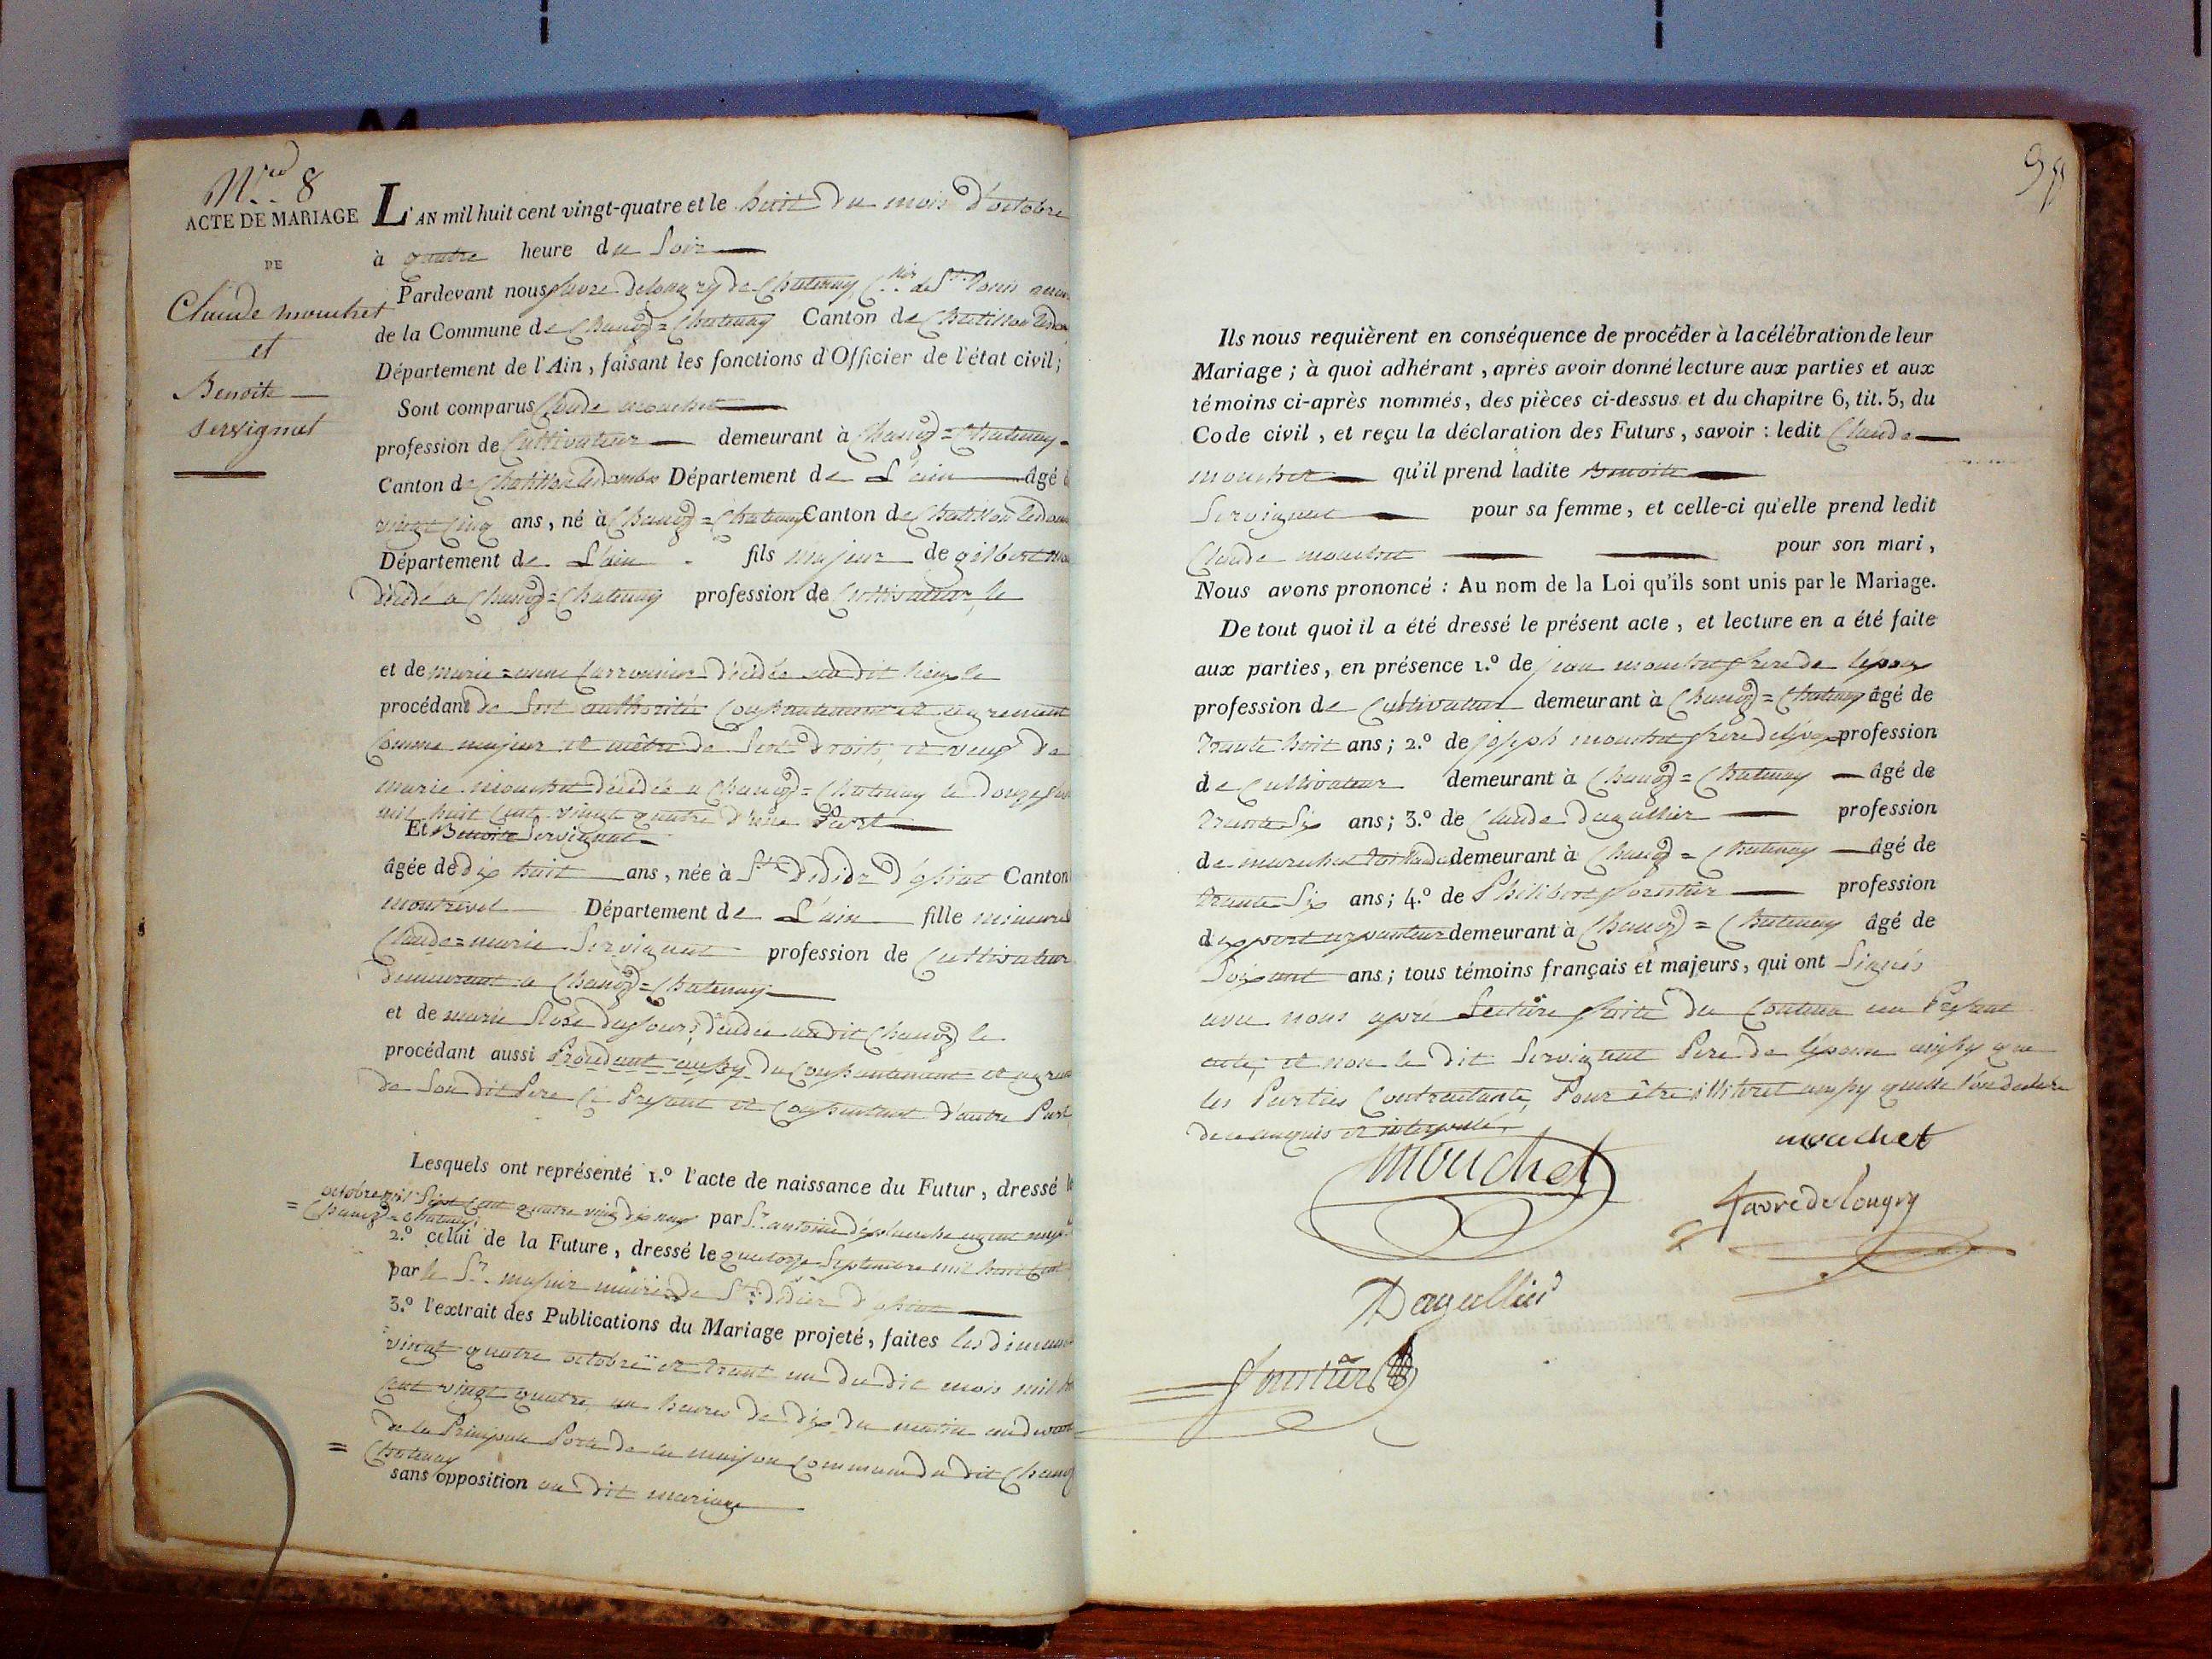 N.ro 8
ACTE DE MARIAGE
DE
Claude mouchet
et
Benoite
servignat
L'AN mil huit cent vingt-quatre et le huit du mois d'octobre
à quatre heure du soir
Pardevant nous favre delongry de Chatenay de St Louis
de la Commune de Chanoz=Chatenay Canton de Chatillon
Département de l'Ain, faisant les fonctions d'Officier de l'état civil;
Sont comparus Claude mouchet
profession de Cultivateur demeurant à Chanoz=Chatenay
Canton de Chatillon ledombes Département de L'ain âgé
vingt cinq ans, né à Chanoz=Chatenay Canton de Chatillon
Département de L'ain fils majeur de gilbert
décédé a Chanoz=Chatenay profession de Cultivateur, le
et de marie=anne décédée au dit lieu, le
procédant de son authorité Consentement et agrement
Comme majeur et maître de ses droits, et veuf de
marie mouchet décédée a Chanoz=Chatenay le douze
mil huit Cent vingt quatre d'une Part
Et Benoite Servignat
âgée de dix huit ans, née à St Didier d'ossiat Canton
montrevel Département de L'ain fille mineure
Claude=marie Servignat profession de Cultivateur
demeurant a Chanoz=Chatenay
et de marie Rose dufour, décédée au dit Chanoz le
procédant aussi Procedant aussy du Consentement et
de Son dit Pere Ci Present et Consentant d'autre Part
Lesquels ont représenté 1.º l'acte de naissance du Futur, dressé le
octobre mil Sept Cent quatre vingt dix neuf par Sr antoine agent
= Chanoz=Chatenay,
2.º celui de la Future, dressé le quatorze Septembre mil huit Cent
par le Sr maire de St Didier d'ossiat
3.º l'extrait des Publications du Mariage projeté, faites les
vingt quatre octobre et trent un du dit mois mil
Cent vingt quatre, au heures de dix du matin au devant
de la Principale Porte de la maison Commune du dit Chanoz
= Chatenay
sans opposition au dit mariage
Ils nous requièrent en conséquence de procéder à la célébration de leur
Mariage; à quoi adhérant, après avoir donné lecture aux parties et aux
témoins ci-après nommés, des pièces ci-dessus et du chapitre 6, tit. 5, du
Code civil, et reçu la déclaration des Futurs, savoir: ledit Claude
mouchet qu'il prend ladite Benoite
Servignat pour sa femme, et celle-ci qu'elle prend ledit
Claude mouchet pour son mari,
Nous avons prononcé: Au nom de la Loi qu'ils sont unis par le Mariage.
De tout quoi il a été dressé le présent acte, et lecture en a été faite
aux parties, en présence 1.º de jean mouchet frere de l'époux
profession de Cultivateur demeurant à Chanoz=Chatenay âgé de
trante huit ans; 2.º de joseph mouchet frere de l'époux profession
de Cultivateur demeurant à Chanoz=Chatenay âgé de
trante Six ans; 3.º de Claude dagallier profession
de demeurant à Chanoz=Chatenay âgé de
trante Six ans; 4.º de Philibert profession
demeurant à Chanoz=Chatenay âgé de
Soixant ans; tous témoins français et majeurs, qui ont Signés
avec nous aprè Lecture faite du Contenu au Present
acte, et non le dit Servignat Pere de l'épouse ainsy que
les Parties Contractante, Pour être illitret ainsy quelle l'on declare
de ce enquis et interpellé.
Mouchet
mouchet
favre delongry
Dagallier